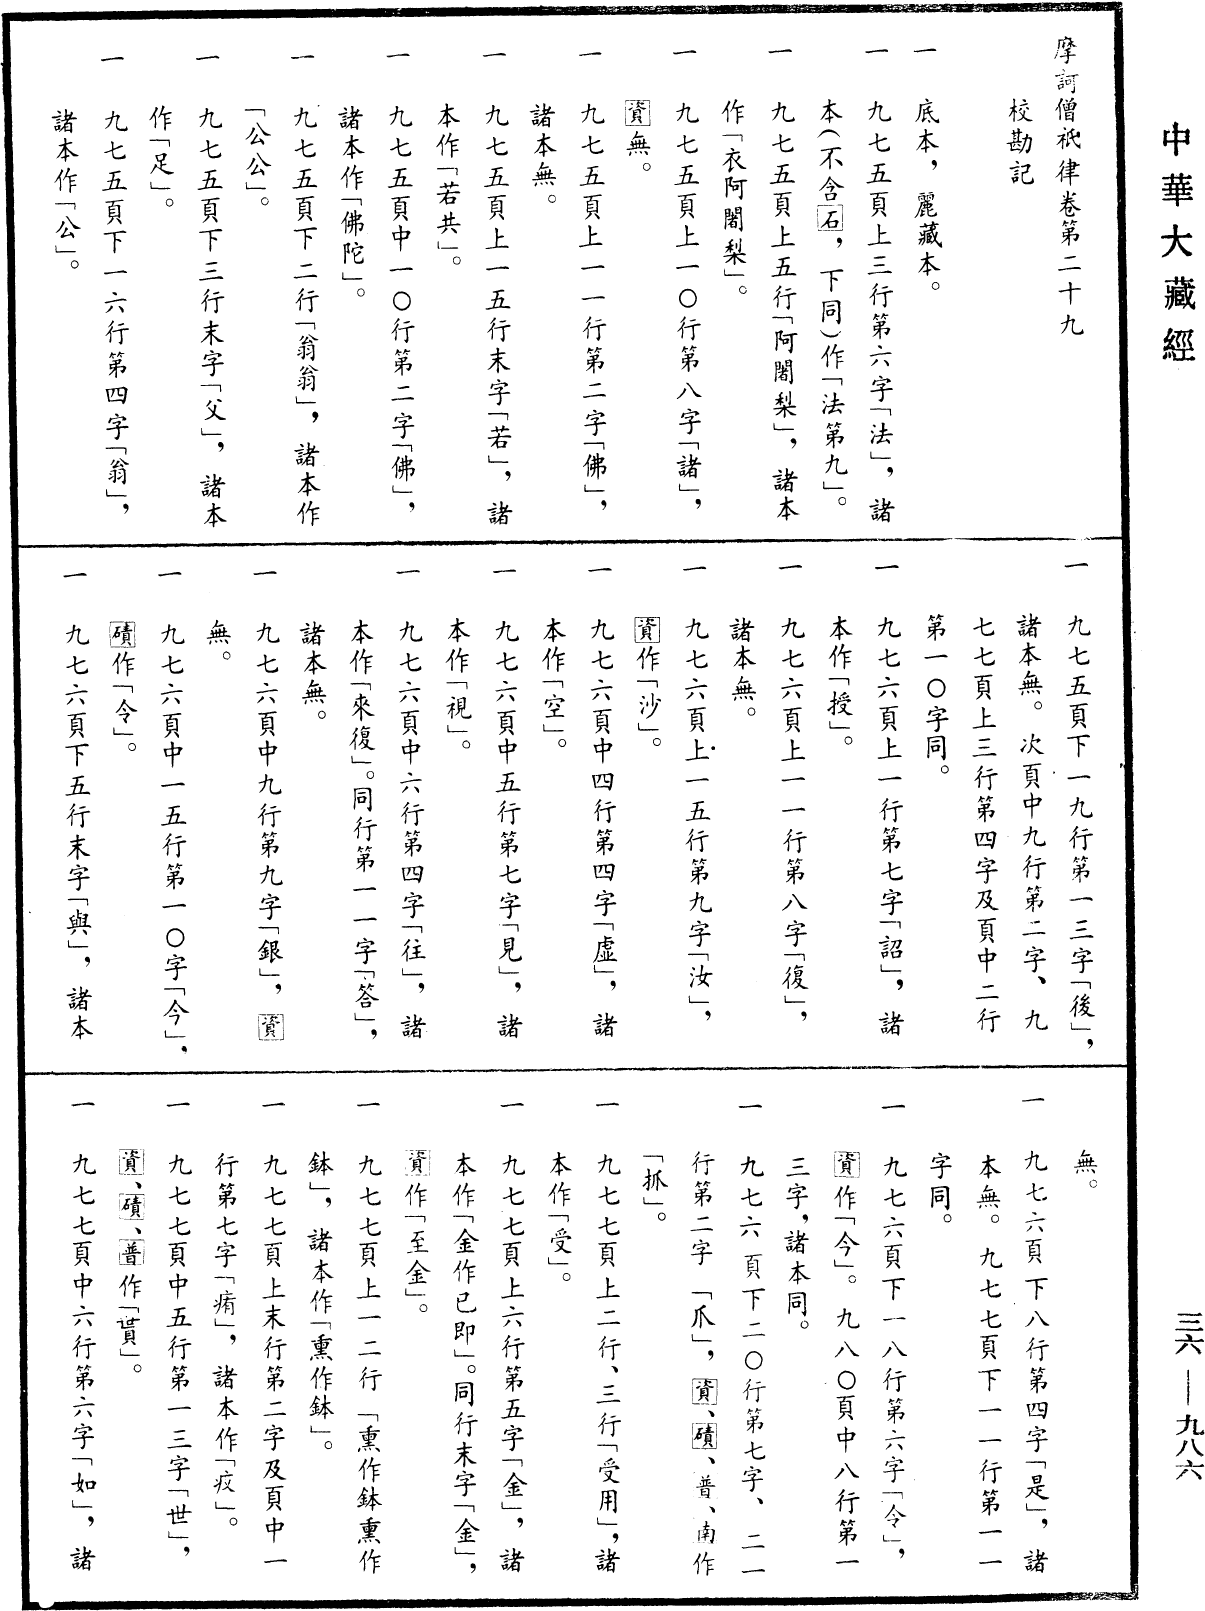 中華大藏經
摩訶僧祇律卷第二十九
校勘記
一　底本，麗藏本。
一　九七五頁上三行第六字「法」，諸
本(不含石，下同)作「法第九」。
一　九七五頁上五行「阿闍梨」，諸本
作「衣阿闍梨」。
一　九七五頁上一〇行第八字「諸」，
資無。
一　九七五頁上一一行第二字「佛」，
諸本無。
一　九七五頁上一五行末字「若」，諸
本作「若共」。
一　九七五頁中一〇行第二字「佛」，
諸本作「佛陀」。
一　九七五頁下二行「翁翁」，諸本作
「公公」。
一　九七五頁下三行末字「父」，諸本
作「足」。
一　九七五頁下一六行第四字「翁」，
諸本作「公」。
一　九七五頁下一九行第一三字「後」，
諸本無。次頁中九行第二字、九
七七頁上三行第四字及頁中二行
第一〇字同。
一　九七六頁上一行第七字「詔」，諸
本作「授」。
一　九七六頁上一一行第八字「復」，
諸本無。
一　九七六頁上一五行第九字「汝」，
資作「沙」。
一　九七六頁中四行第四字「虛」，諸
本作「空」。
一　九七六頁中五行第七字「見」，諸
本作「視」。
一　九七六頁中六行第四字「往」，諸
本作「來復」。同行第一一字「答」，
諸本無。
一　九七六頁中九行第九字「銀」，資
無。
一　九七六頁中一五行第一〇字「今」，
磧作「令」。
一　九七六頁下五行末字「與」，諸本
無。
一　九七六頁下八行第四字「是」，諸
本無。九七七頁下一一行第一一
字同。
一　九七六頁下一八行第六字「令」，
資作「今」。九八〇頁中八行第一
三字，諸本同。
一　九七六頁下二〇行第七字、二一
行第二字「爪」，資、磧、普、南作
「抓」。
一　九七七頁上二行、三行「受用」，諸
本作「受」。
一　九七七頁上六行第五字「金」，諸
本作「金作已即」。同行末字「金」，
資作「至金」。
一　九七七頁上一二行「熏作鉢熏作
鉢」，諸本作「熏作鉢」。
一　九七七頁上末行第二字及頁中一
行第七字「痏」，諸本作「疫」。
一　九七七頁中五行第一三字「世」，
資、磧、普作「貰」。
一　九七七頁中六行第六字「如」，諸
三六——九八六